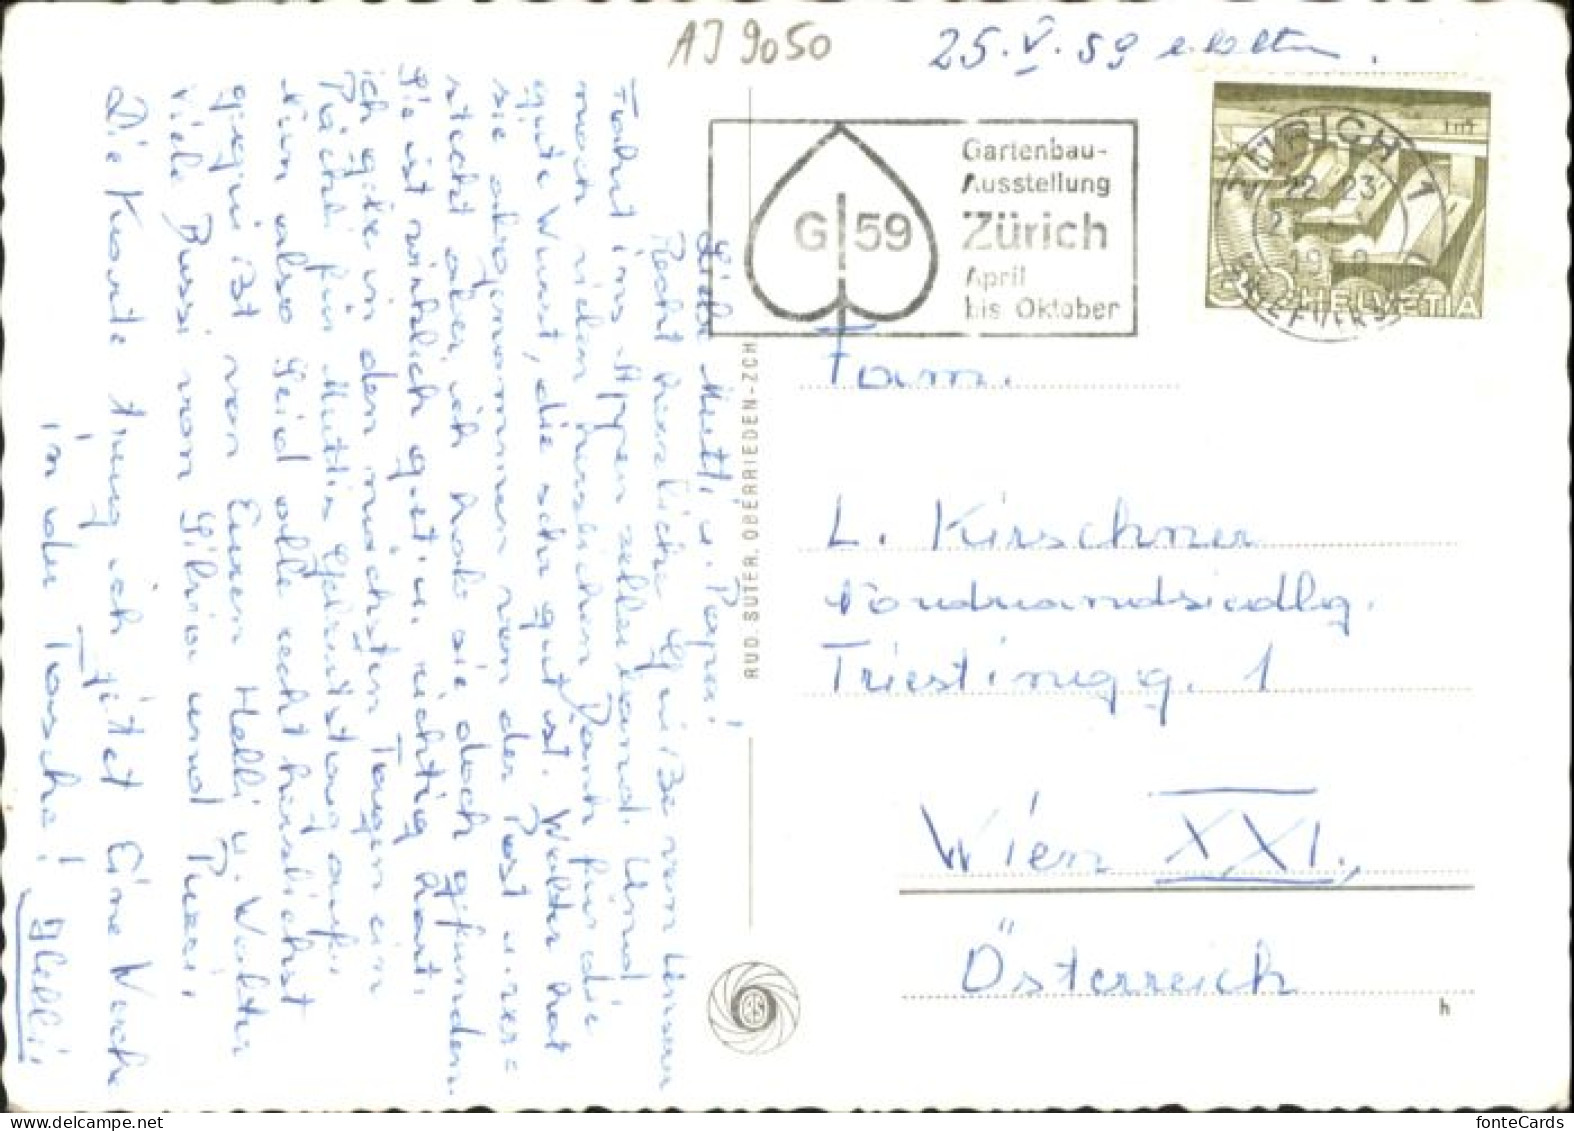 AJ 9050
25. V. 59 erhalten.
Gartenbau-
Ausstellung
G 59
Zürich
April
bis Oktober
ZÜRICH 1
22 23
BRIEFVERS
1959
HELVETIA
Liebe Mutti u. Papa!
Recht herzliche Grüße von unserer
Fahrt ins Appenzellerland. Und
noch vielen herzlichen Dank für die
gute Wurst, die sehr gut ist. Walter hat
sie abgenommen von der Post u. ver=
steckt aber ich hab sie doch gefunden.
Sie ist wirklich gut u. richtig hart.
ich gebe in den nächsten Tagen ein
Päckerl für Muttis Geburtstag auf.
Nun also seid alle recht herzlichst
gegrüßt von Euren Helli u. Walter
viele Bussi von Silvia und
Die Karte trug ich jetzt Eine Woche
in der Tasche! Helli
RUD. SUTER, OBERRIEDEN-ZCH
Fam.
L. Kirschner
Nordrandsiedlg.
Triestingg. 1
Wien XXI.,
Österreich
h
fonteCards
https://www.delcampe.net